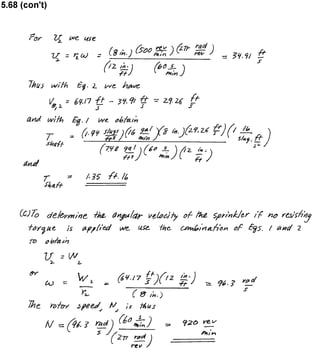 5.68 (con't)
For U₂ we use
U₂ = r₂ω = (8 in.)(500 rev/min)(2π rad/rev) / (12 in./ft)(60 s/min) = 34.91 ft/s
Thus with Eq. 2 we have
V_θ,₂ = 64.17 ft/s - 34.91 ft/s = 29.26 ft/s
and with Eq. 1 we obtain
T_shaft = (1.94 slugs/ft³)(16 gal/min)(8 in.)(29.26 ft/s)(1 lb/slug.ft/s²) / (7.48 gal/ft³)(60 s/min)(12 in./ft)
and
T_shaft = 1.35 ft.lb
(c) To determine the angular velocity of the sprinkler if no resisting
torque is applied we use the combination of Eqs. 1 and 2
to obtain
U₂ = W₂
or
ω = W₂/r₂ = (64.17 ft/s)(12 in./ft) / (8 in.) = 96.3 rad/s
The rotor speed, N, is thus
N = (96.3 rad/s)(60 s/min) / (2π rad/rev) = 920 rev/min